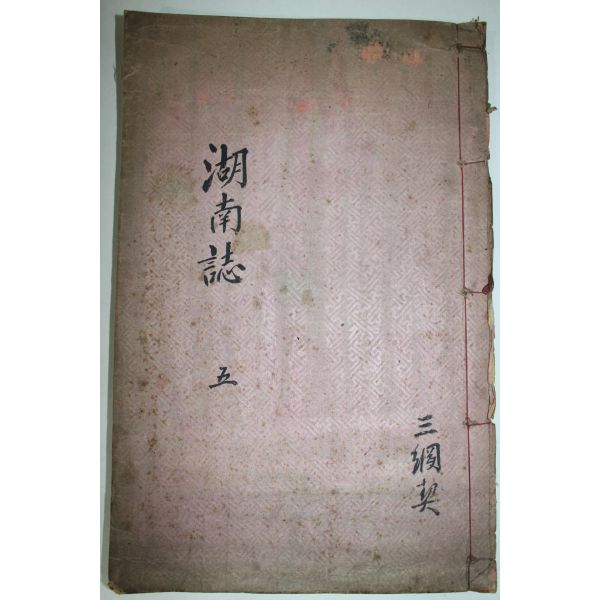 湖南誌
五
三綱契